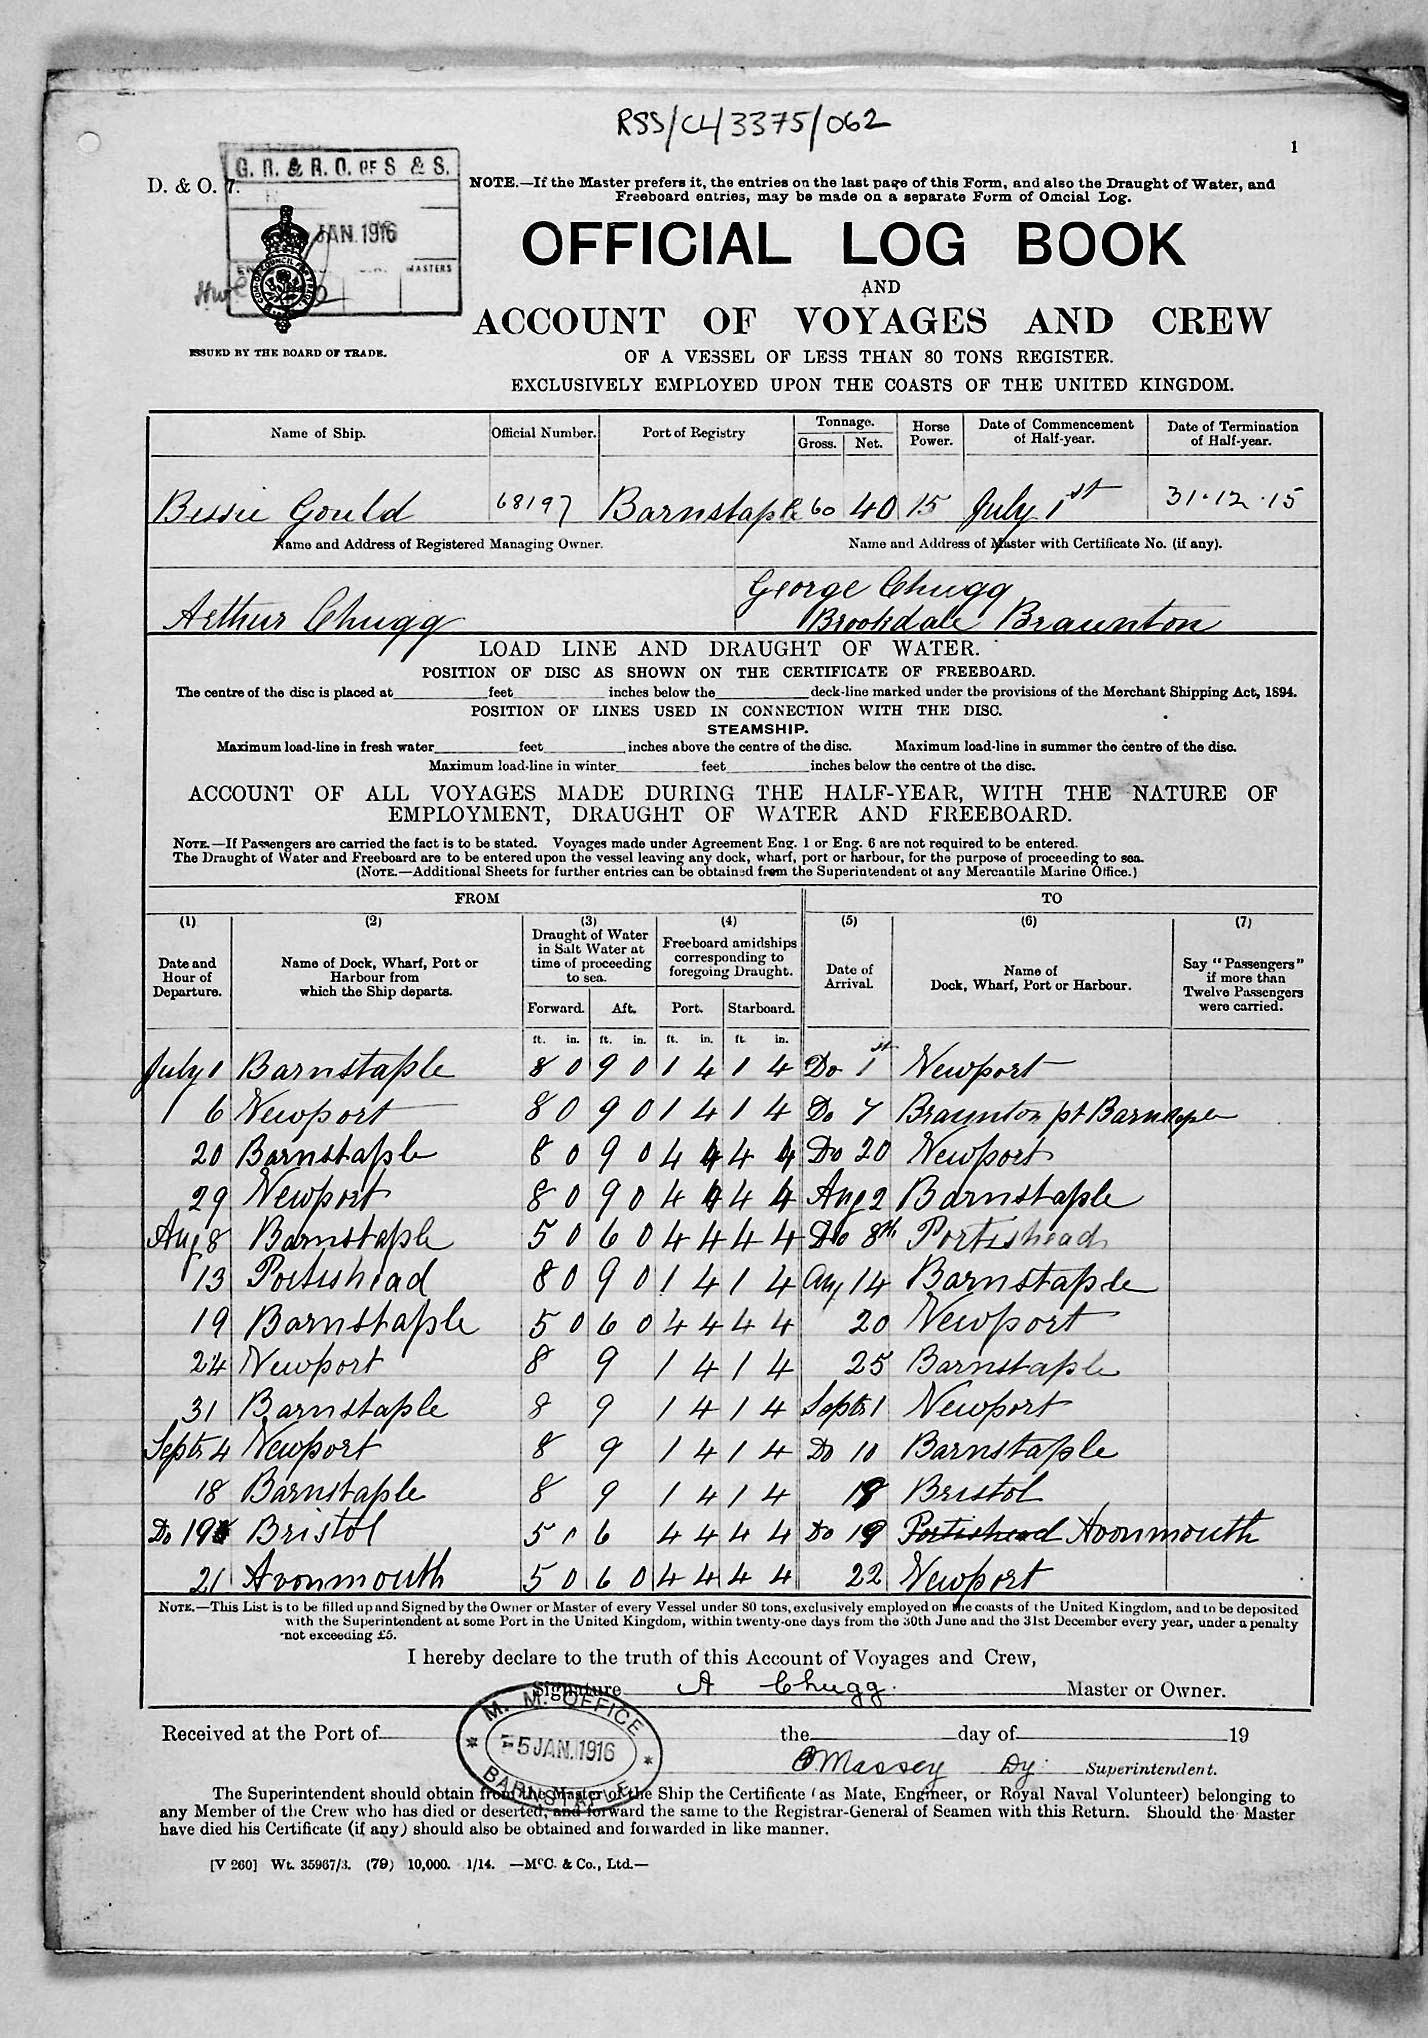 RSS/CL/3375/062
1
G. R. & R. O. OF S & S.
D. & O. 7.
JAN. 1916
MASTERS
ISSUED BY THE BOARD OF TRADE.
NOTE.—If the Master prefers it, the entries on the last page of this Form, and also the Draught of Water, and
Freeboard entries, may be made on a separate Form of Official Log.
OFFICIAL LOG BOOK
AND
ACCOUNT OF VOYAGES AND CREW
OF A VESSEL OF LESS THAN 80 TONS REGISTER.
EXCLUSIVELY EMPLOYED UPON THE COASTS OF THE UNITED KINGDOM.
Name of Ship. Official Number. Port of Registry Tonnage. Gross. Net. Horse Power. Date of Commencement of Half-year. Date of Termination of Half-year.
Bessie Gould 68197 Barnstaple 60 40 15 July 1st 31.12.15
Name and Address of Registered Managing Owner. Name and Address of Master with Certificate No. (if any).
George Chugg
Arthur Chugg Brookdale Braunton
LOAD LINE AND DRAUGHT OF WATER.
POSITION OF DISC AS SHOWN ON THE CERTIFICATE OF FREEBOARD.
The centre of the disc is placed at feet inches below the deck-line marked under the provisions of the Merchant Shipping Act, 1894.
POSITION OF LINES USED IN CONNECTION WITH THE DISC.
STEAMSHIP.
Maximum load-line in fresh water feet inches above the centre of the disc. Maximum load-line in summer the centre of the disc.
Maximum load-line in winter feet inches below the centre of the disc.
ACCOUNT OF ALL VOYAGES MADE DURING THE HALF-YEAR, WITH THE NATURE OF
EMPLOYMENT, DRAUGHT OF WATER AND FREEBOARD.
NOTE.—If Passengers are carried the fact is to be stated. Voyages made under Agreement Eng. 1 or Eng. 6 are not required to be entered.
The Draught of Water and Freeboard are to be entered upon the vessel leaving any dock, wharf, port or harbour, for the purpose of proceeding to sea.
(NOTE.—Additional Sheets for further entries can be obtained from the Superintendent of any Mercantile Marine Office.)
FROM TO
(1) (2) (3) (4) (5) (6) (7)
Date and Hour of Departure. Name of Dock, Wharf, Port or Harbour from which the Ship departs. Draught of Water in Salt Water at time of proceeding to sea. Freeboard amidships corresponding to foregoing Draught. Date of Arrival. Name of Dock, Wharf, Port or Harbour. Say "Passengers" if more than Twelve Passengers were carried.
Forward. Aft. Port. Starboard.
ft. in. ft. in. ft. in. ft. in.
July 1 Barnstaple 8 0 9 0 1 4 1 4 Do 1st Newport
1 6 Newport 8 0 9 0 1 4 1 4 Do 7 Braunton pt Barnstaple
20 Barnstaple 8 0 9 0 4 4 4 4 Do 20 Newport
29 Newport 8 0 9 0 4 4 4 4 Aug 2 Barnstaple
Aug 8 Barnstaple 5 0 6 0 4 4 4 4 Do 8th Portishead
13 Portishead 8 0 9 0 1 4 1 4 Aug 14 Barnstaple
19 Barnstaple 5 0 6 0 4 4 4 4 20 Newport
24 Newport 8 9 1 4 1 4 25 Barnstaple
31 Barnstaple 8 9 1 4 1 4 Septr 1 Newport
Septr 4 Newport 8 9 1 4 1 4 Do 10 Barnstaple
18 Barnstaple 8 9 1 4 1 4 18 Bristol
Do 19 Bristol 5 1 6 4 4 4 4 Do 19 Portishead Avonmouth
21 Avonmouth 5 0 6 0 4 4 4 4 22 Newport
NOTE.—This List is to be filled up and Signed by the Owner or Master of every Vessel under 80 tons, exclusively employed on the coasts of the United Kingdom, and to be deposited
with the Superintendent at some Port in the United Kingdom, within twenty-one days from the 30th June and the 31st December every year, under a penalty
not exceeding £5.
I hereby declare to the truth of this Account of Voyages and Crew,
Signature A Chugg. Master or Owner.
M. M. OFFICE
5 JAN. 1916
BARNSTAPLE
Received at the Port of the day of 19
Massey Dy. Superintendent.
The Superintendent should obtain from the Master of the Ship the Certificate (as Mate, Engineer, or Royal Naval Volunteer) belonging to
any Member of the Crew who has died or deserted, and forward the same to the Registrar-General of Seamen with this Return. Should the Master
have died his Certificate (if any) should also be obtained and forwarded in like manner.
[V 260] Wt. 35967/3. (79) 10,000. 1/14. —McC. & Co., Ltd.—